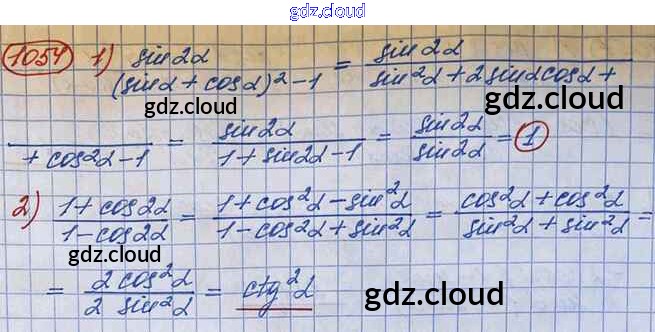 gdz.cloud
1054 1) sin2α / (sinα + cosα)² - 1 = sin2α / sin²α + 2sinαcosα +
gdz.cloud
gdz.cloud
/ + cos²α - 1 = sin2α / 1 + sin2α - 1 = sin2α / sin2α = 1
2) 1 + cos2α / 1 - cos2α = 1 + cos²α - sin²α / 1 - cos²α + sin²α = cos²α + cos²α / sin²α + sin²α =
gdz.cloud
gdz.cloud
= 2cos²α / 2 sin²α = ctg²α
gdz.cloud